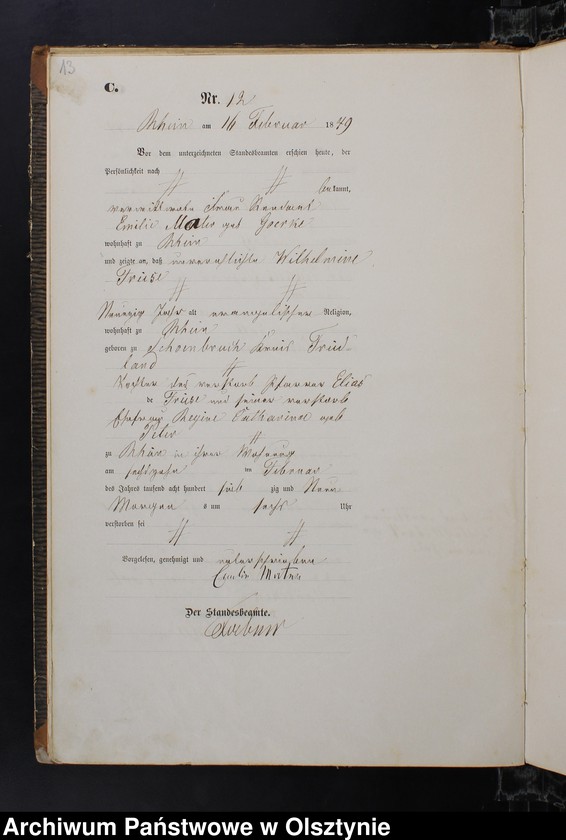 13
C.
Nr. 12
Rhein am 16 Februar 1879
Vor dem unterzeichneten Standesbeamten erschien heute, der
Persönlichkeit nach
bekannt,
verwittwete Frau Rendant
Emilie geb Goerke
wohnhaft zu Rhein
und zeigte an, daß unverehlichte Wilhelmine
Friese
Neunzig Jahr alt evangelischer Religion,
wohnhaft zu Rhein
geboren zu Schoenbruch Kreis Fried-
land
Tochter des verstorb Pfarrer Elias
Friese und seiner verstorb
Ehefrau Regine Catharine geb
zu Rhein in ihrer Wohnung
am sechszehn ten Februar
des Jahres tausend acht hundert sieb zig und Neun
Morgens um sechs Uhr
verstorben sei
Vorgelesen, genehmigt und unterschrieben
Emilie
Der Standesbeamte.
Archiwum Państwowe w Olsztynie